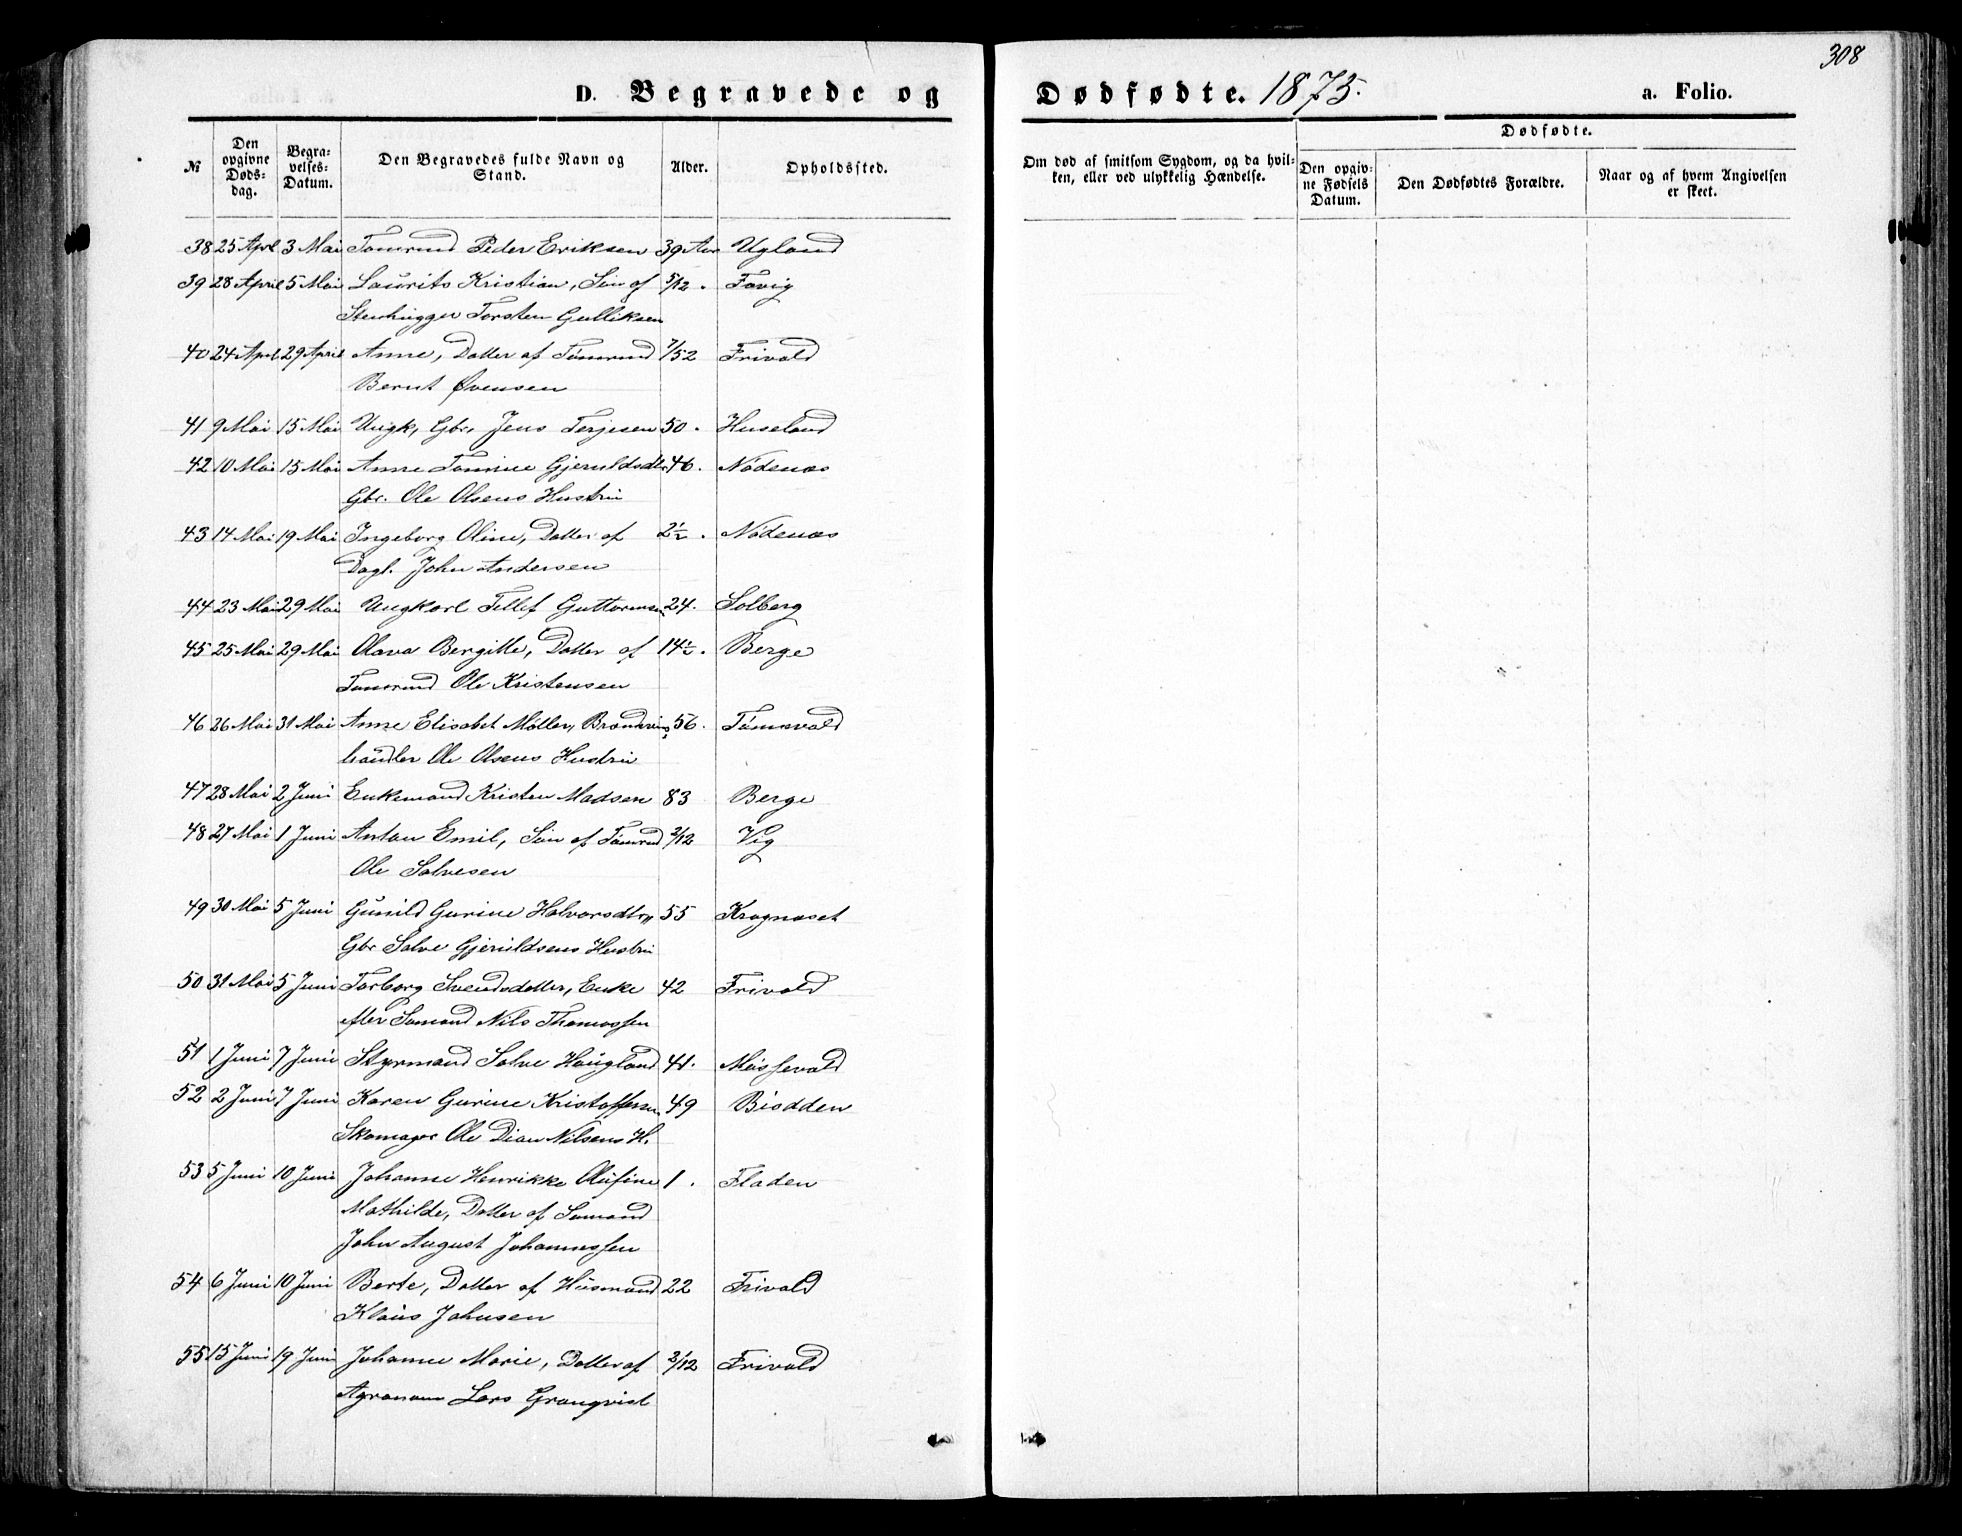 308
D. Begravede og Dødfødte. 1875. a. Folio.
№
Den opgivne Døds-dag.
Begra-velses-Datum.
Den Begravedes fulde Navn og Stand.
Alder.
Opholdssted.
Om død af smitsom Sygdom, og da hvil-ken, eller ved ulykkelig Hændelse.
Dødfødte.
Den opgiv-ne Fødsels Datum.
Den Dødfødtes Forældre.
Naar og af hvem Angivelsen er skeet.
38 25 Apl 3 Mai Tømrmd Peder Eriksen 39 Aar Ugland
39 28 April 5 Mai Laurits Kristian, Søn af 5/12 . Favig
Stenhugger Torsten Gulliksen
40 24 April 29 April Anne, Datter af Tømrmd 7/52 Frivold
Bernt Øvensen
41 9 Mai 15 Mai Ungk, Gbr, Jens Terjesen 50 . Huseland
42 10 Mai 15 Mai Anne Tomine Gjeruldsdtr 46 . Nødenæs
Gbr. Ole Olsens Hustru
43 14 Mai 19 Mai Ingeborg Oline, Datter af 2½ . Nødenæs
Dagl. John Andersen
44 23 Mai 29 Mai Ungkarl Tellef Guttormsen 24. Solberg
45 25 Mai 29 Mai Olava Bergitte, Datter af 14½ . Berge
Tømrmd Ole Kristensen
46 26 Mai 31 Mai Anne Elisabet Møller, Brændevins 56 . Tønnevold
handler Ole Olsens Hustru
47 28 Mai 2 Juni Enkemand Kristen Madsen 83 Berge
48 27 Mai 1 Juni Anton Emil, Søn af Tømrmd 2/12 Vig
Ole Salvesen
49 30 Mai 5 Juni Gunild Gurine Halvorsdtr, 55 Kragnæset
Gbr Salve Gjeruldsens Hustru
50 31 Mai 5 Juni Torborg Svendsdatter, Enke 42 Frivold
efter Sømand Nils Thomassen
51 1 Juni 7 Juni Styrmand Salve Haugland 41. Møssevold
52 2 Juni 7 Juni Karen Gurine Kristoffersen 49 Biodden
Skomager Ole Dian Nilsens H.
53 5 Juni 10 Juni Johanne Henrikke Olufine 1 . Fladen
Mathilde, Datter af Sømand
John August Johannessen
54 6 Juni 10 Juni Berte, Datter af Husmand 22 Frivold
Klaus Johnsen
55 15 Juni 19 Juni Johanne Marie, Datter af 2/12 Frivold
Agronom Lars Granqvist